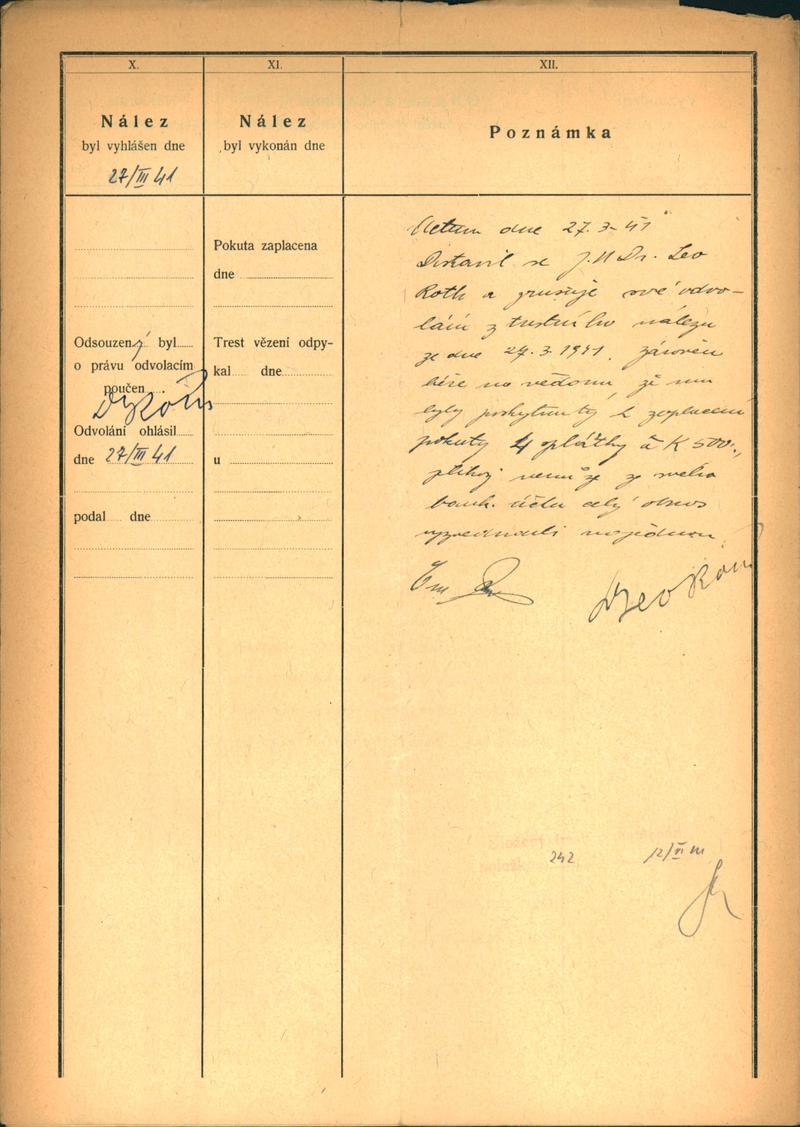 X.
Nález
byl vyhlášen dne
27/III 41
Odsouzený byl
o právu odvolacím
poučen
Odvolání ohlásil
dne 27/III 41
podal dne
XI.
Nález
byl vykonán dne
Pokuta zaplacena
dne
Trest vězení odpy-
kal dne
u
XII.
Poznámka
Actum dne 27.3.41
Dostavil se J.U.Dr. Leo
Roth a zrušuje své odvo-
lání z trestního nálezu
ze dne 27.3.1941. zároveň
béře na vědomí, že mu
byly poskytnuty k zaplacení
pokuty 4 splátky à K 500.-,
nemůže ze svého
bank. účtu celý obnos
vyzvednouti najednou.
Dr Leo Roth
242
12/VI